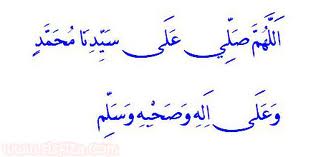 اَللَّهُمَّ صَلِّي عَلَى سَيِّدِنَا مُحَمَّدٍ
وَعَلَى اَلِهِ وَصَحْبِهِ وَسَلِّم